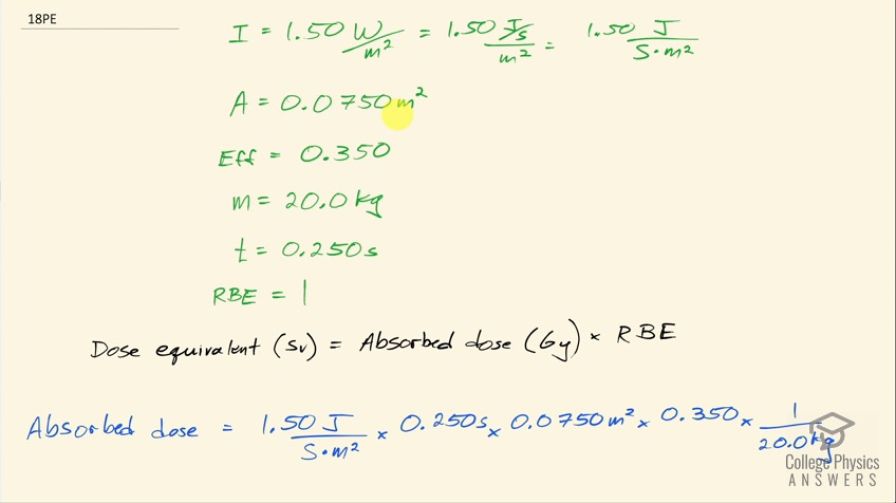 18PE
I = 1.50 W/m² = 1.50 J/s/m² = 1.50 J/s·m²
A = 0.0750 m²
Eff = 0.350
m = 20.0 kg
t = 0.250 s
RBE = 1
Dose equivalent (Sv) = Absorbed dose (Gy) × RBE
Absorbed dose = 1.50 J/s·m² × 0.250 s × 0.0750 m² × 0.350 × 1/20.0 kg
College Physics
ANSWERS